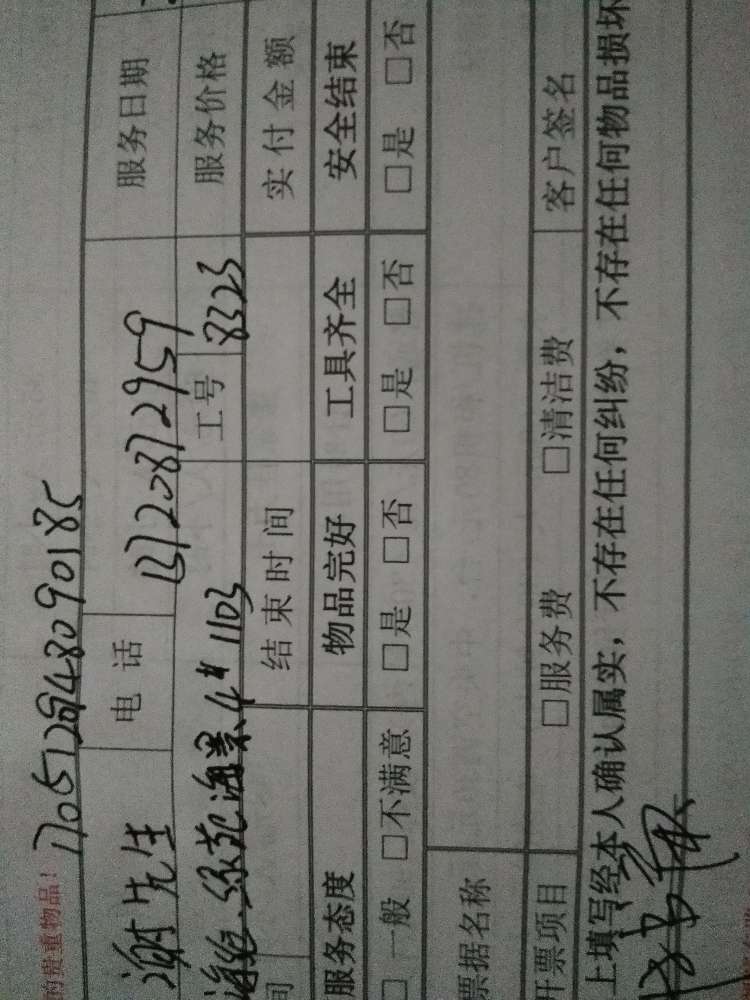 的贵重物品！ 170512894809 0185
谢先生 电话 13720872959 服务日期
绿苑海景4#1103 工号 8323 服务价格
间 结束时间 实付金额
服务态度 物品完好 工具齐全 安全结束
□一般 □不满意 □是 □否 □是 □否 □是 □否
票据名称
开票项目 □服务费 □清洁费 客户签名
上填写经本人确认属实，不存在任何纠纷，不存在任何物品损坏